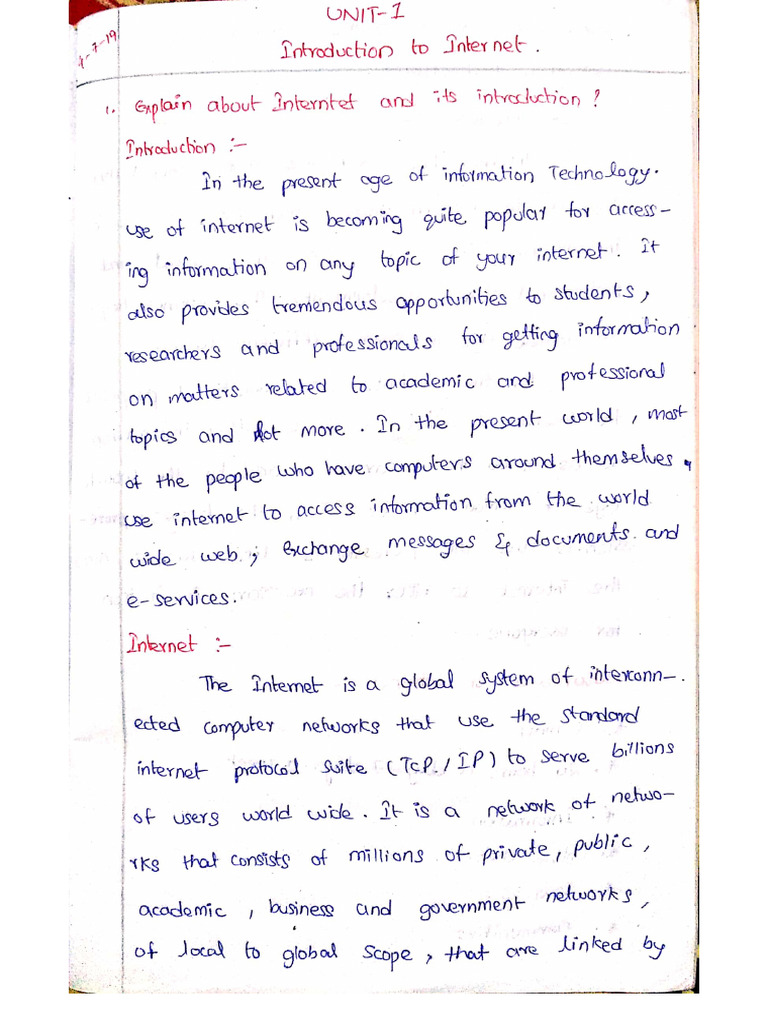 UNIT-1
4-7-19
Introduction to Internet.
1. Explain about Interntet and its introduction?
Introduction :-
In the present age of information Technology.
use of internet is becoming quite popular for access-
ing information on any topic of your internet. It
also provides tremendous opportunities to students,
researchers and professionals for getting information
on matters related to academic and professional
topics and lot more. In the present world, most
of the people who have computers around themselves,
use internet to access information from the world
wide web; Exchange messages & documents and
e-services.
Internet :-
The Internet is a global system of interconn-
ected computer networks that use the standard
internet protocal suite (TCP/IP) to serve billions
of users world wide. It is a network of netwo-
rks that consists of millions of private, public,
academic, business and government networks,
of local to global scope, that are linked by